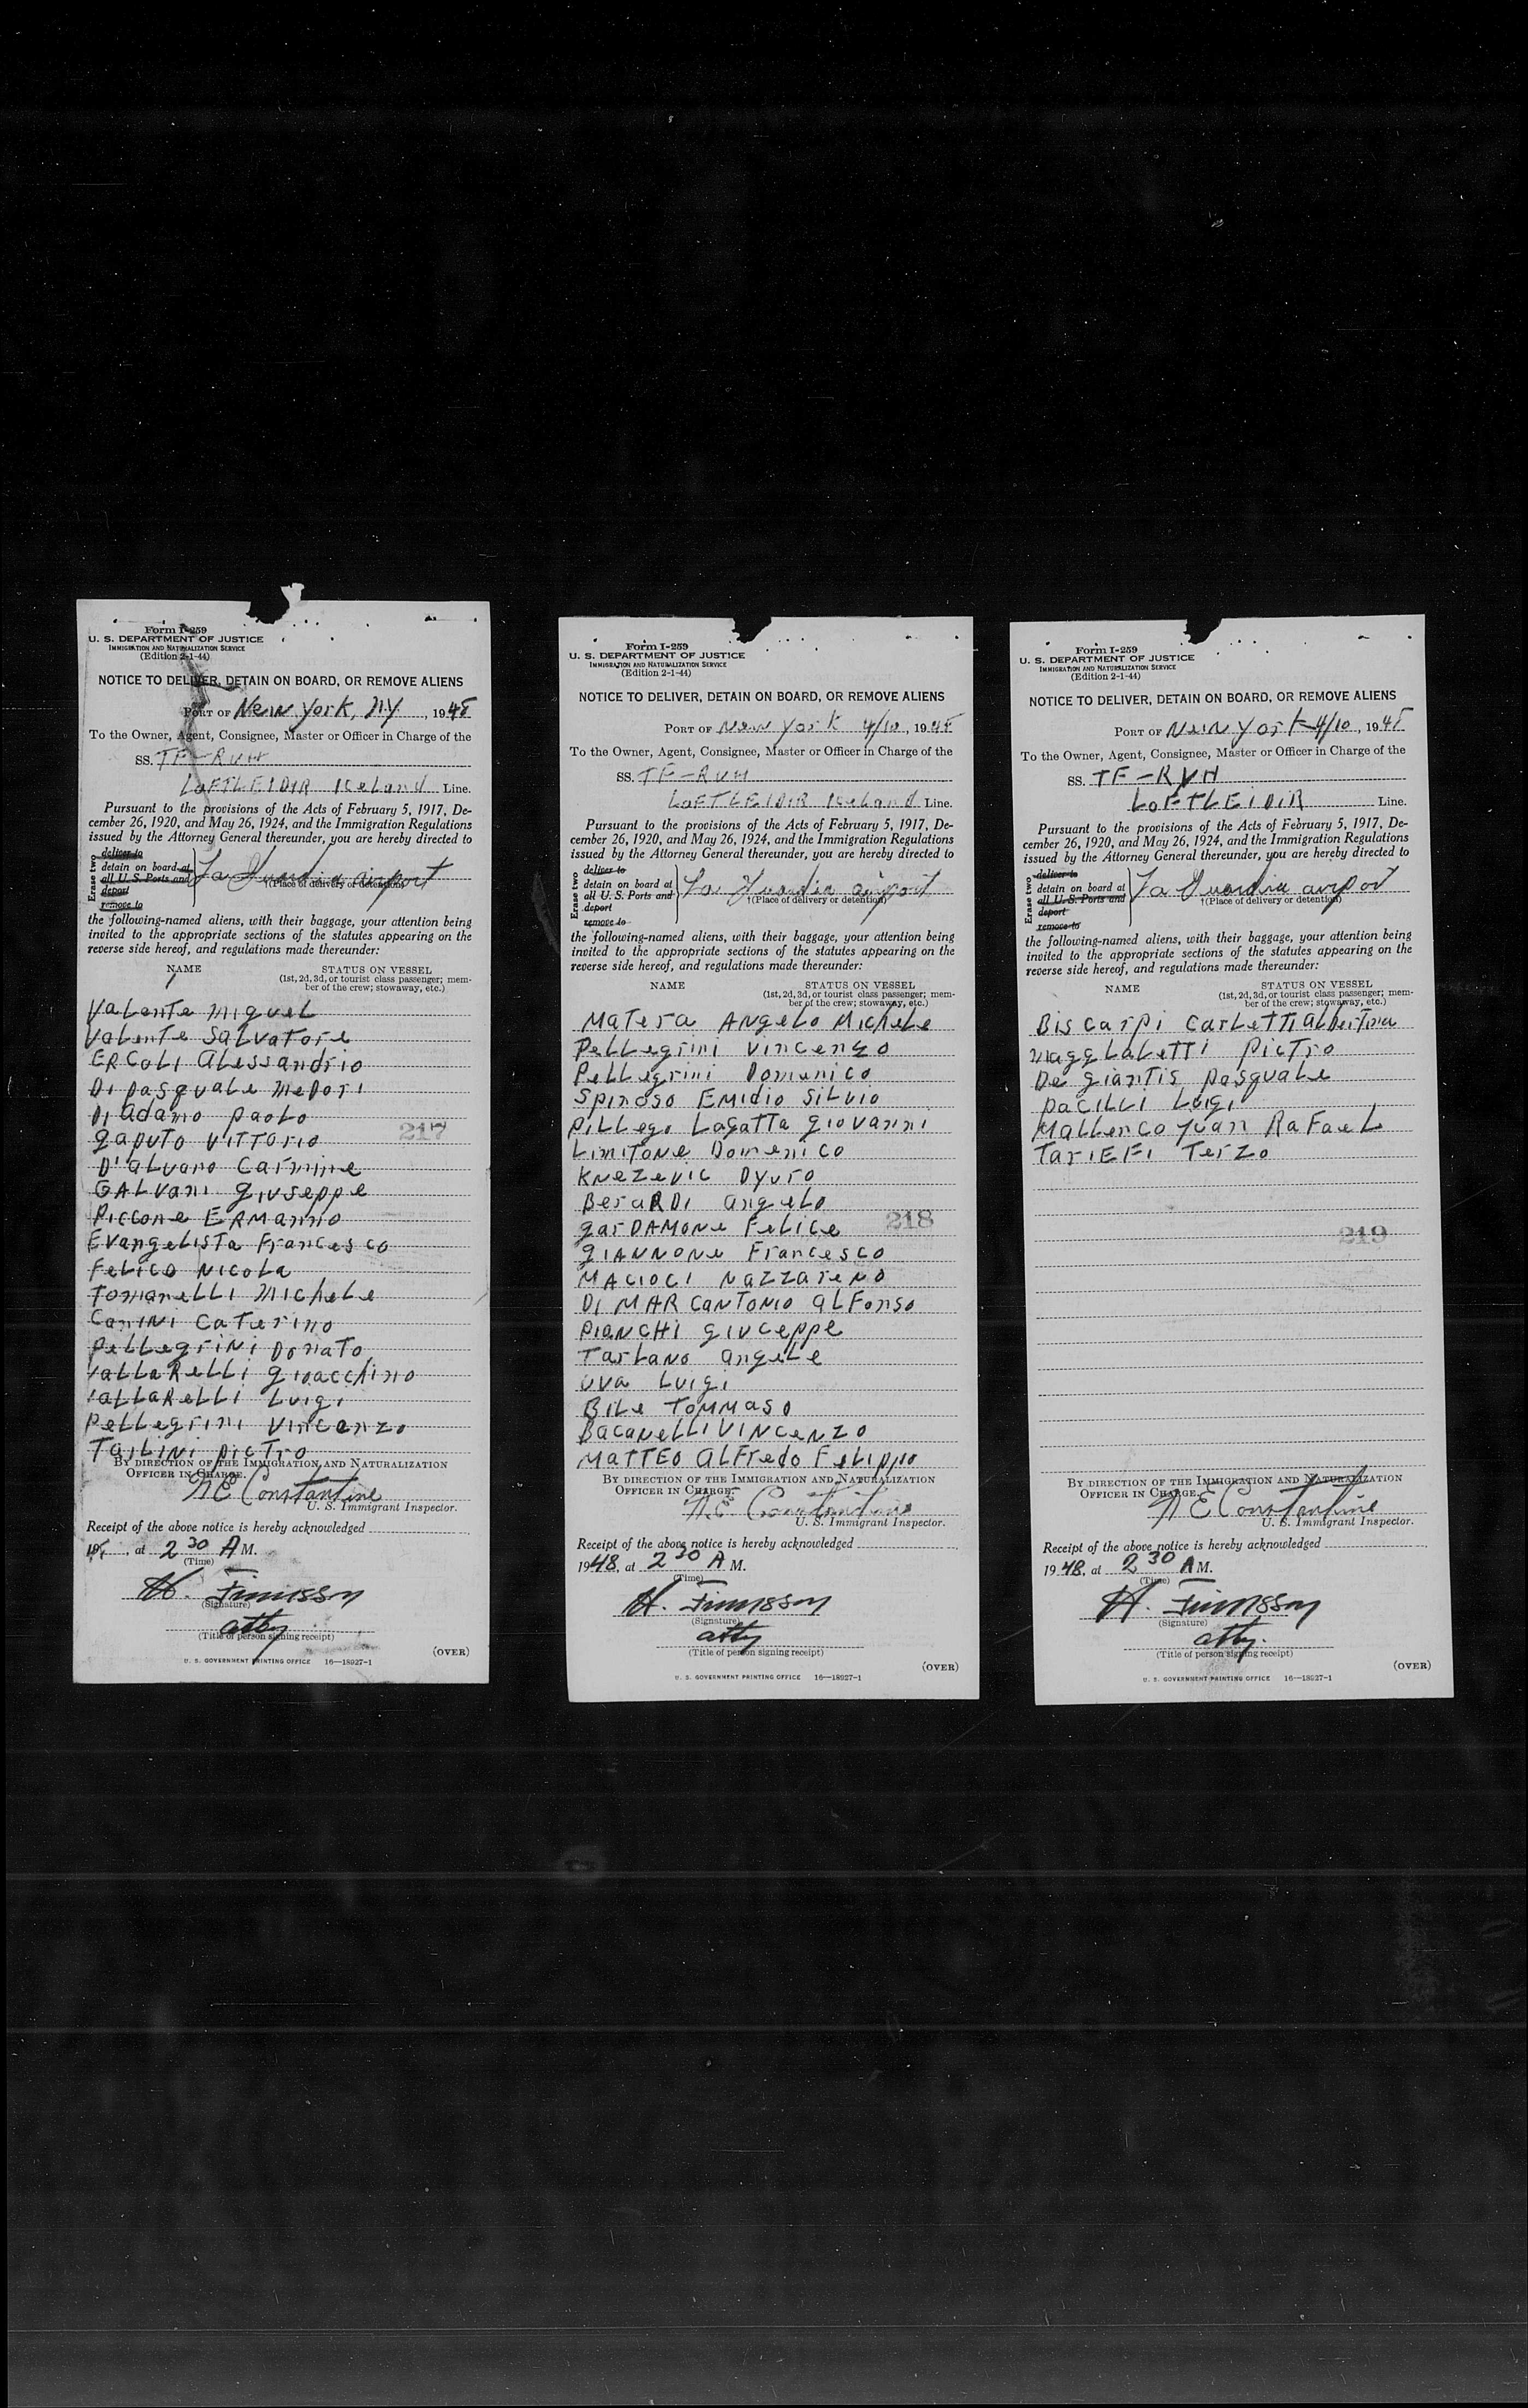 Form I-259
U. S. DEPARTMENT OF JUSTICE
IMMIGRATION AND NATURALIZATION SERVICE
(Edition 2-1-44)
NOTICE TO DELIVER, DETAIN ON BOARD, OR REMOVE ALIENS
PORT OF New York, NY, 1948
To the Owner, Agent, Consignee, Master or Officer in Charge of the
SS. TF-RVH
LOFTLEIDIR Iceland Line.
Pursuant to the provisions of the Acts of February 5, 1917, De-
cember 26, 1920, and May 26, 1924, and the Immigration Regulations
issued by the Attorney General thereunder, you are hereby directed to
Erase two
deliver to
detain on board at
all U. S. Ports and
deport
remove to
La Guardia airport
†(Place of delivery or detention)
the following-named aliens, with their baggage, your attention being
invited to the appropriate sections of the statutes appearing on the
reverse side hereof, and regulations made thereunder:
NAME STATUS ON VESSEL
(1st, 2d, 3d, or tourist class passenger; mem-
ber of the crew; stowaway, etc.)
Valente Miguel
Valente Salvatore
ERColi Alessandrio
Di Pasquale Medori
Di Adamo Paolo
Gaputo Vittorio
217
D'Alvaro Carmine
GALvani Giuseppe
Piccone ERManno
Evangelista Francesco
Felico Nicola
Tomanelli Michele
Canini Caterino
Pellegrini Donato
Vallarelli Gioacchino
Vallarelli Luigi
Pellegrini Vincenzo
Tailini Pictro
BY DIRECTION OF THE IMMIGRATION AND NATURALIZATION
OFFICER IN CHARGE.
N E Constantine
U. S. Immigrant Inspector.
Receipt of the above notice is hereby acknowledged
19, at 2 30 A M.
(Time)
H. Finnsson
(Signature)
atty
(Title of person signing receipt)
(OVER)
U. S. GOVERNMENT PRINTING OFFICE 16—18927-1
Form I-259
U. S. DEPARTMENT OF JUSTICE
IMMIGRATION AND NATURALIZATION SERVICE
(Edition 2-1-44)
NOTICE TO DELIVER, DETAIN ON BOARD, OR REMOVE ALIENS
PORT OF New York 4/10, 1948
To the Owner, Agent, Consignee, Master or Officer in Charge of the
SS. TF-RVH
LOFTLEIDIR Iceland Line.
Pursuant to the provisions of the Acts of February 5, 1917, De-
cember 26, 1920, and May 26, 1924, and the Immigration Regulations
issued by the Attorney General thereunder, you are hereby directed to
Erase two
deliver to
detain on board at
all U. S. Ports and
deport
remove to
La Guardia airport
†(Place of delivery or detention)
the following-named aliens, with their baggage, your attention being
invited to the appropriate sections of the statutes appearing on the
reverse side hereof, and regulations made thereunder:
NAME STATUS ON VESSEL
(1st, 2d, 3d, or tourist class passenger; mem-
ber of the crew; stowaway, etc.)
Matera Angelo Michele
Pellegrini Vincenzo
Pellegrini Domenico
Spinoso Emidio Silvio
Pillego Lagatta Giovanni
Limitone Domenico
Knezevic Dyuro
Berardi Angelo
GarDAMONe Felice
218
GIANNONe Francesco
MACIOCI Nazzareno
Di MARCanTonio ALFonso
PIANCHI Giuceppe
Tarlano Angele
Uva Luigi
Bile Tommaso
Bacanelli Vincenzo
Matteo Alfredo Filippo
BY DIRECTION OF THE IMMIGRATION AND NATURALIZATION
OFFICER IN CHARGE.
N. E. Constantine
U. S. Immigrant Inspector.
Receipt of the above notice is hereby acknowledged
1948, at 2 30 A M.
(Time)
H. Finnsson
(Signature)
atty
(Title of person signing receipt)
(OVER)
U. S. GOVERNMENT PRINTING OFFICE 16—18927-1
Form I-259
U. S. DEPARTMENT OF JUSTICE
IMMIGRATION AND NATURALIZATION SERVICE
(Edition 2-1-44)
NOTICE TO DELIVER, DETAIN ON BOARD, OR REMOVE ALIENS
PORT OF New York 4/10, 1948
To the Owner, Agent, Consignee, Master or Officer in Charge of the
SS. TF-RVH
LOFTLEIDIR Line.
Pursuant to the provisions of the Acts of February 5, 1917, De-
cember 26, 1920, and May 26, 1924, and the Immigration Regulations
issued by the Attorney General thereunder, you are hereby directed to
Erase two
deliver to
detain on board at
all U. S. Ports and
deport
remove to
La Guardia airport
†(Place of delivery or detention)
the following-named aliens, with their baggage, your attention being
invited to the appropriate sections of the statutes appearing on the
reverse side hereof, and regulations made thereunder:
NAME STATUS ON VESSEL
(1st, 2d, 3d, or tourist class passenger; mem-
ber of the crew; stowaway, etc.)
Biscarpi Carletti Albertina
Magglaletti Pictro
De Giantis Pasquale
Pacilli Luigi
Mallenco Juan Rafael
Tariefi Terzo
219
BY DIRECTION OF THE IMMIGRATION AND NATURALIZATION
OFFICER IN CHARGE.
N E Constantine
U. S. Immigrant Inspector.
Receipt of the above notice is hereby acknowledged
1948, at 2 30 A M.
(Time)
H. Finnsson
(Signature)
atty.
(Title of person signing receipt)
(OVER)
U. S. GOVERNMENT PRINTING OFFICE 16—18927-1